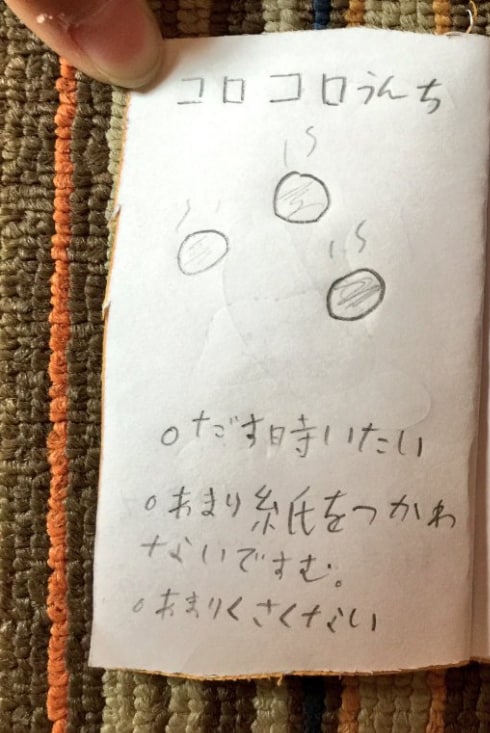 コロコロうんち
○だす時いたい
○あまり紙をつかわ
ないですむ。
○あまりくさくない